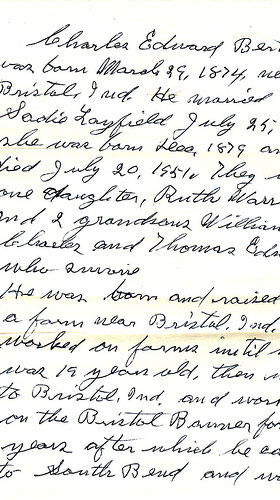 Charles Edward Ber
was born March 29, 1874, ne
Bristol, Ind. He married
Sadie Layfield July 25,
she was born Dec, 1879 an
died July 20, 1951. They
one daughter, Ruth Warr
nd 2 grandsons William
Charles and Thomas Edw
who survive
He was born and raised
a farm near Bristol, Ind.
worked on farms until
was 19 years old, then
to Bristol, Ind. and wor
on the Bristol Banner fo
years after which he ca
to South Bend and w